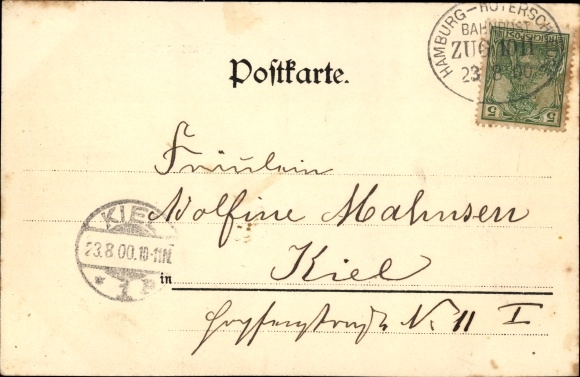 HAMBURG-
BAHNPOST
ZUG 1011
23 8 00
REICHSPOST
5 5
Postkarte.
Fräulein
Adolfine Mahnsen
KIEL
23.8.00.10-11N.
* 1
in Kiel
Hopfenstraße No 11 I